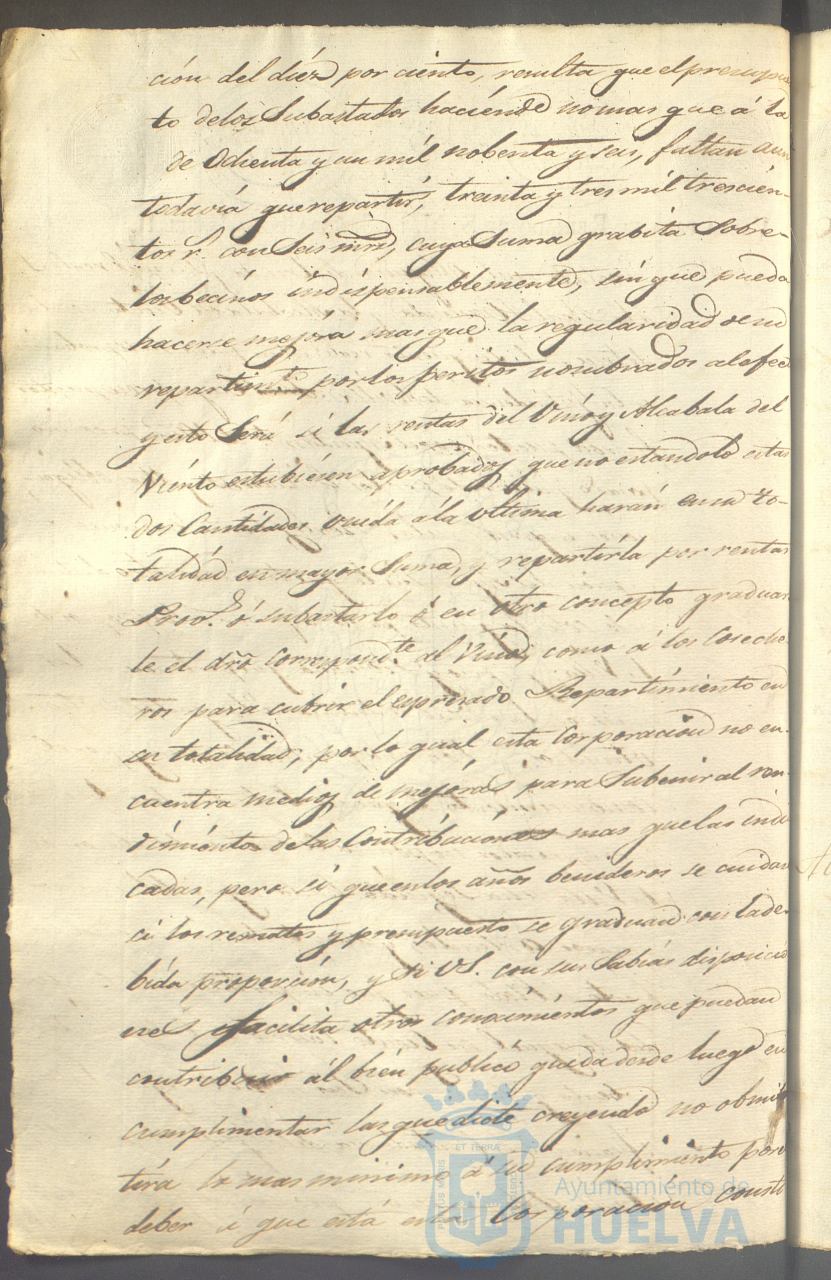 ción del diéz por ciento, resulta que el presupues
to delos Subastados haciénde no mas que á la
de Ochenta y un mil nobenta y seis, faltan aun
todavia que repartir, treinta y tres mil trescien-
tos r. con Seis mrs, cuya Suma grabita Sobre
los becinos indispensablemente, sin que pueda
hacerse mejóra mas que la regularidad de un
repartimto. por los peritos nombrados al efec
y esto Será si las rentas del Vino y Alcabala del
Viénto estubiesen aprobadas, que no estandolo estas
dos Cantidades unida á la ultima harán en su to-
talidad en mayor Suma, y repartirla por rentas
Prov.s ó subastarlo ó en otro concepto graduar
le el dro correspondte. al Vino, como á los Coseche
ros para cubrir el espresado Repartimiento en
su totalidad, por lo qual esta Corporacion no en-
cuentra medios de mejóras para Subenir al ren-
dimiento de las Contribuciónes mas que las indi
cadas, pero si que en los años benideros se cuidará
si los remates y presupuesto se graduan con la de-
bida proporción, y si VS. con sus Sabias disposicio
nes facilita otros conocimientos que puedan
contribuir ál bién publicó queda desde luego en
cumplimentar las que dicte creyendo no obmi
tirá lo mas minimo á su cumplimiento por el
deber á que está esta Corporacion consti
Ayuntamiento de
HUELVA